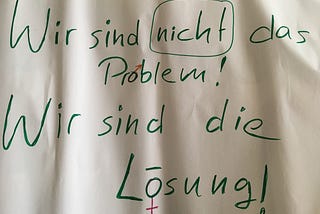 Wir sind nicht das
Problem!
Wir sind die
Lösung!